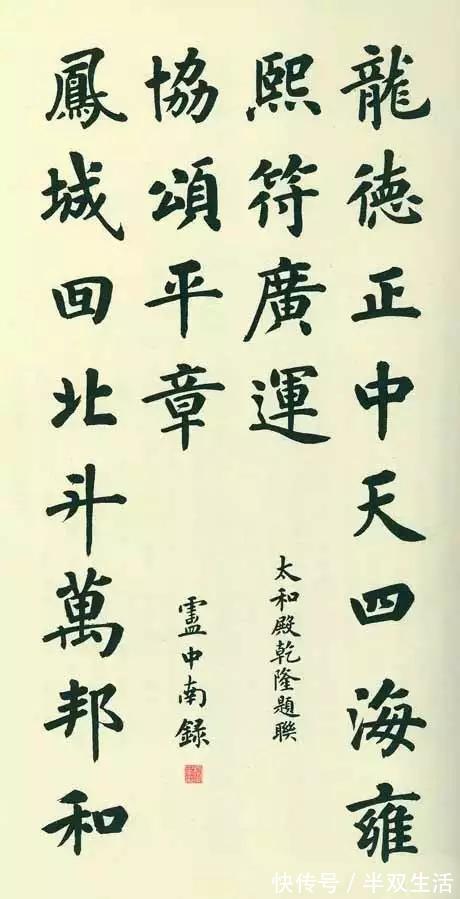 龍德正中天四海雍
熙符廣運
鳳城回北斗萬邦和
協頌平章
太和殿乾隆題聯
盧中南録
快传号 / 半双生活